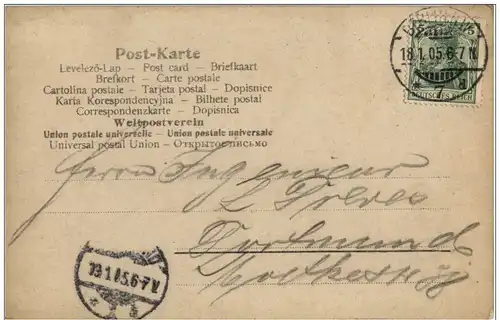 Post-Karte
Levelező-Lap – Post card – Briefkaart
Brefkort – Carte postale
Cartolina postale – Tarjeta postal – Dopisnice
Karta Korespondencyjna – Bilhete postal
Correspondenzkarte – Dopisnica
Weltpostverein
Union postale universelle – Union postale universale
Universal postal Union – Открытое письмо
5
18.1.05.6-7N.
DEUTSCHES REICH
7
Herrn Ingenieur
L
Dortmund
19.1.05.6-7V.